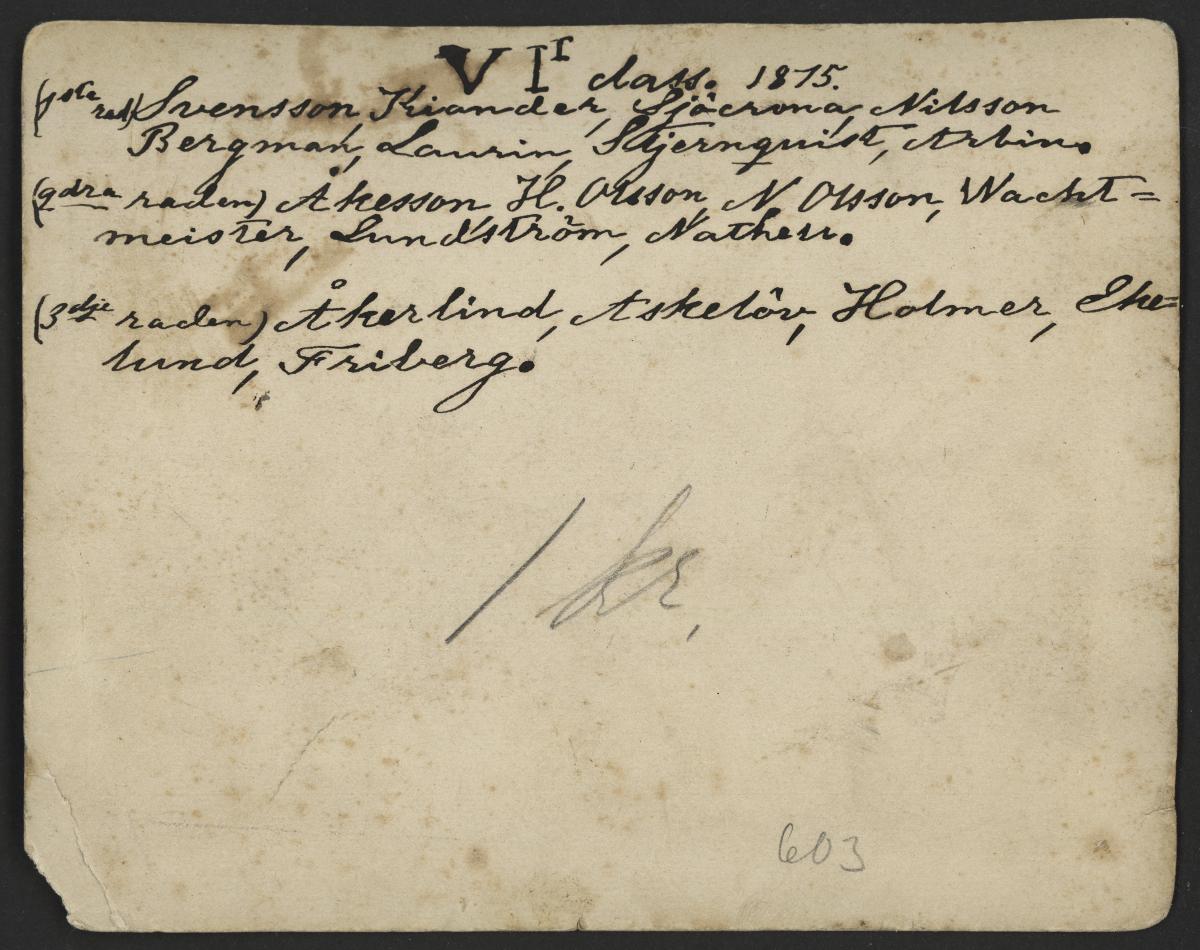 VI r class. 1875.
(1sta rad) Svensson, Kiander, Sjöcrona, Nilsson
Bergman, Laurin, Stjernquist, Arbin.
(2dra raden) Åkesson H. Olsson, N Olsson, Wacht=
meister, Lundström, Nathell.
(3dje raden) Åkerlind, Askelöv, Holmer, Eke=
lund, Friberg.
1 kr.
603